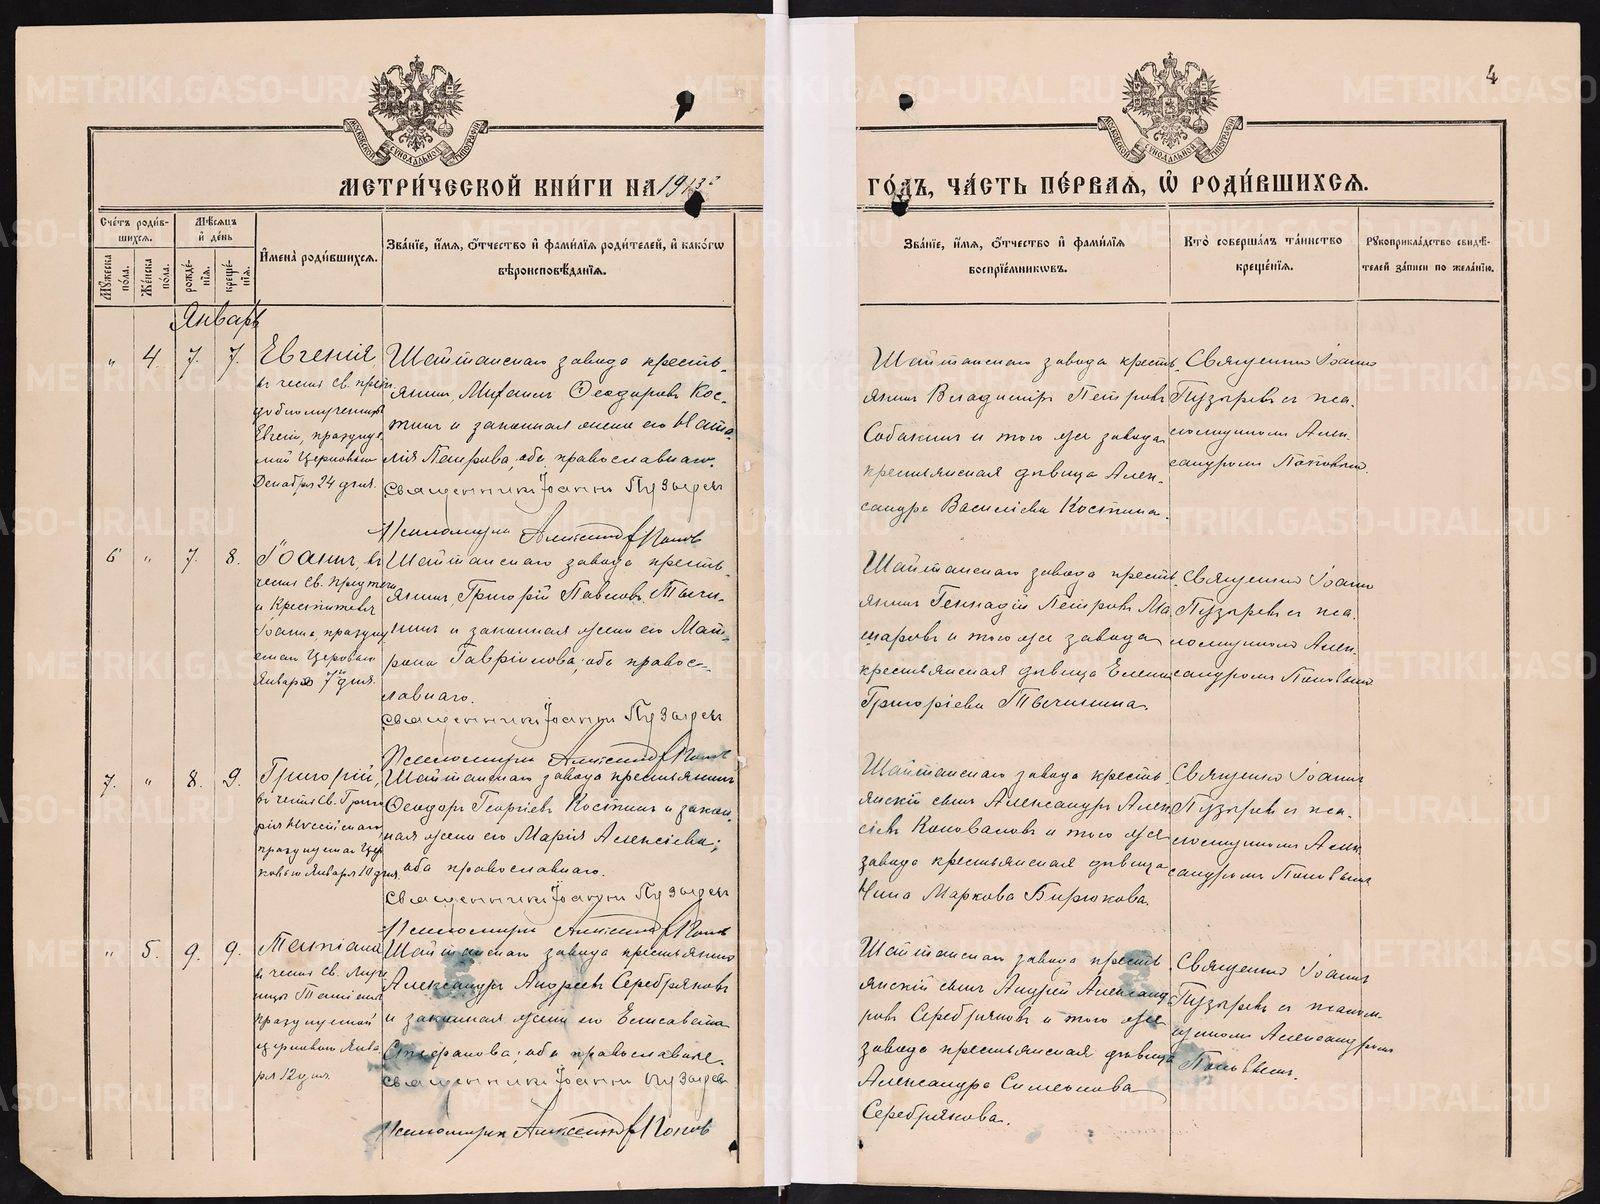 4
МОСКОВСКОЙ СѴНОДАЛЬНОЙ ТИПОГРАФІИ
МОСКОВСКОЙ СѴНОДАЛЬНОЙ ТИПОГРАФІИ
МЕТРИ́ЧЕСКОЙ КНИ́ГИ НА 1913й ГО́ДЪ, ЧА́СТЬ ПЕ́РВАЯ, Ѡ РОДИ́ВШИХСЯ.
Сче́тъ роди́в-
шихся.
Мѣсяцъ
и де́нь
Мꙋжеска по́ла.
Же́нска по́ла.
рожде́-
нїя.
креще́-
нїя.
И́мена̀ роди́вшихся.
Зва́нїе, и́мя, ѻ́тчество и фами́лїя роди́телей, и како́гѡ
вѣроисповѣ́данїя.
Зва́нїе, и́мя, ѻ́тчество и фами́лїя
воспрїе́мникѡвъ.
Кто̀ соверша́лъ та́инство
креще́нїя.
Рꙋкоприкла́дство свидѣ́-
телей за́писи по жела́нїю.
Январь
" 4. 7. 7.
Евгенія
въ честь св. препо-
добномученицы
Евгеніи, празднуе-
мой Церковью
Декабря 24 дня.
Шайтанскаго завода кресть-
янинъ Михаилъ Ѳеодоровъ Кос-
тинъ и законная жена его Ната-
лія Петрова, оба православнаго.
Священникъ Іоаннъ Пузыревъ
Псаломщикъ Александръ Поповъ
Шайтанскаго завода кресть-
янинъ Владиміръ Петровъ
Собакинъ и того же завода
крестьянская дѣвица Алек-
сандра Василіева Костина.
Священникъ Іоаннъ
Пузыревъ съ пса-
ломщикомъ Алек-
сандромъ Поповымъ.
6 " 7. 8.
Іоаннъ, въ
честь св. Предтечи
и Крестителя
Іоанна, празднуе-
маго Церковью
Января 7го дня.
Шайтанскаго завода кресть-
янинъ Григорій Павловъ Тычи-
нинъ и законная жена его Мат-
рона Гавріилова, оба правос-
лавнаго.
Священникъ Іоаннъ Пузыревъ
Псаломщикъ Александръ Поповъ
Шайтанскаго завода кресть-
янинъ Геннадій Петровъ Ма-
каровъ и того же завода
крестьянская дѣвица Елена
Григоріева Тычинина.
Священникъ Іоаннъ
Пузыревъ съ пса-
ломщикомъ Алек-
сандромъ Поповымъ
7. " 8. 9.
Григорій,
въ честь св. Григо-
рія Нисскаго,
празднуемаго Цер-
ковью Января 10 дня.
Шайтанскаго завода крестьянинъ
Ѳеодоръ Георгіевъ Костинъ и закон-
ная жена его Марія Алексіева;
оба православнаго.
Священникъ Іоаннъ Пузыревъ
Псаломщикъ Александръ Поповъ
Шайтанскаго завода кресть-
янскій сынъ Александръ Алек-
сіевъ Коноваловъ и того же
завода крестьянская дѣвица
Нина Маркова Бирюкова.
Священникъ Іоаннъ
Пузыревъ съ пса-
ломщикомъ Алек-
сандромъ Поповымъ
" 5. 9. 9.
Татіана
въ честь св. Муче-
ницы Татіаны
празднуемой
Церковью Янва-
ря 12 дня.
Шайтанскаго завода крестьянинъ
Александръ Андреевъ Серебряковъ
и законная жена его Елисавета
Стефанова; оба православные.
Священникъ Іоаннъ Пузыревъ
Псаломщикъ Александръ Поповъ
Шайтанскаго завода кресть-
янскій сынъ Андрей Александ-
ровъ Серебряковъ и того же
завода крестьянская дѣвица
Александра Симеонова
Серебрякова.
Священникъ Іоаннъ
Пузыревъ съ псалом-
щикомъ Александромъ
Поповымъ.
METRIKI.GASO-URAL.RU